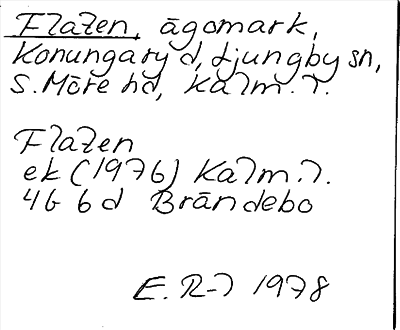 Flaten, ägomark,
Konungaryd, Ljungby sn,
S. Möre hd, Kalm. l.
Flaten
ek (1976) Kalm. l.
4G 6d Brändebo
E. R-l 1978